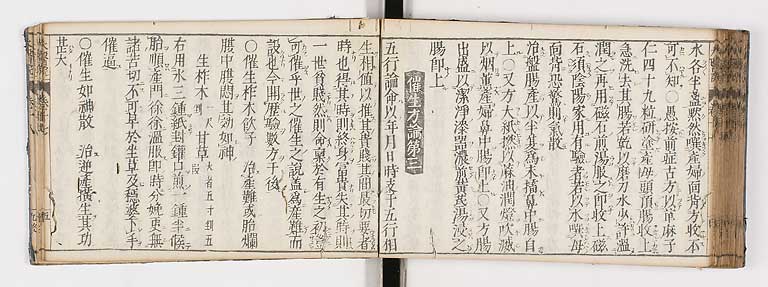 水各半盞黙然噀産婦面背方收本
可不知○愚按前症古方以蓖麻子
仁四十九粒研塗産母頭頂腸收上
急洗去其腸若乾以磨刀水少許温
潤之再用磁石煎湯服之即收上磁
石須陰陽家用有驗者若以水噀母
面背恐驚則氣散
治盤腸産以半夏為末搐鼻中腸自
上○又方大紙撚以麻油潤燈吹滅
以烟薫産婦鼻中腸即上○又方腸
出盛以潔淨漆器濃煎黄芪湯浸之
腸即上
催生方論第三
五行論命以年月日時支干五行相
生相値以推其貴賤其間最切要者
時也得其時則終身富貴失其時則
一世貧賤然則命稟於有生之初
可催乎世之催生之說蓋為産難而
設也今開歴驗數方于後
○催生柞木飲子 治産難或胎爛
腹中腹悶其効如神
生柞木 一尺 甘草 大者五寸剉五
右用水三鍾紙封鑵口煎一鍾半候
胎順産門徐徐温服即時分娩更無
諸苦切不可早於坐草及穏婆下手
催逼
○催生如神散 治逆産横生其功
甚大